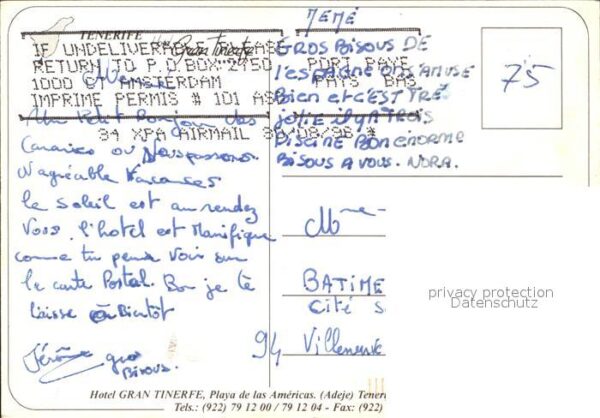 TENERIFE
Gran Tinerfe
IF UNDELIVERABLE PLEASE
RETURN TO P.O BOX 2750
1000 CT AMSTERDAM
IMPRIME PERMIS # 101
PORT PAYE
PAYS BAS
34 XPA AIRMAIL 30/08/96 *
Un Petit Bonjour des
Canaries ou Nous passons
d'agréable Vacances
le soleil est au rendez
Vous. l'hotel est Manifique
comme tu peux Voir sur
le carte Postal. Bon je te
laisse à Bientôt
Jérôme gros
Bisous.
MEMÉ
GROS BISOUS DE
l'espagne ON S'AMUSE
Bien et C'EST TRÉ
JOLIE il y A TROIS
PISCINE BON ENORME
BISOUS A VOUS. NORA.
75
Mme
BATIME
Cité S
94 Villeneuve
privacy protection
Datenschutz
Hotel GRAN TINERFE, Playa de las Américas. (Adeje) Teneri
Tels.: (922) 79 12 00 / 79 12 04 - Fax: (922)